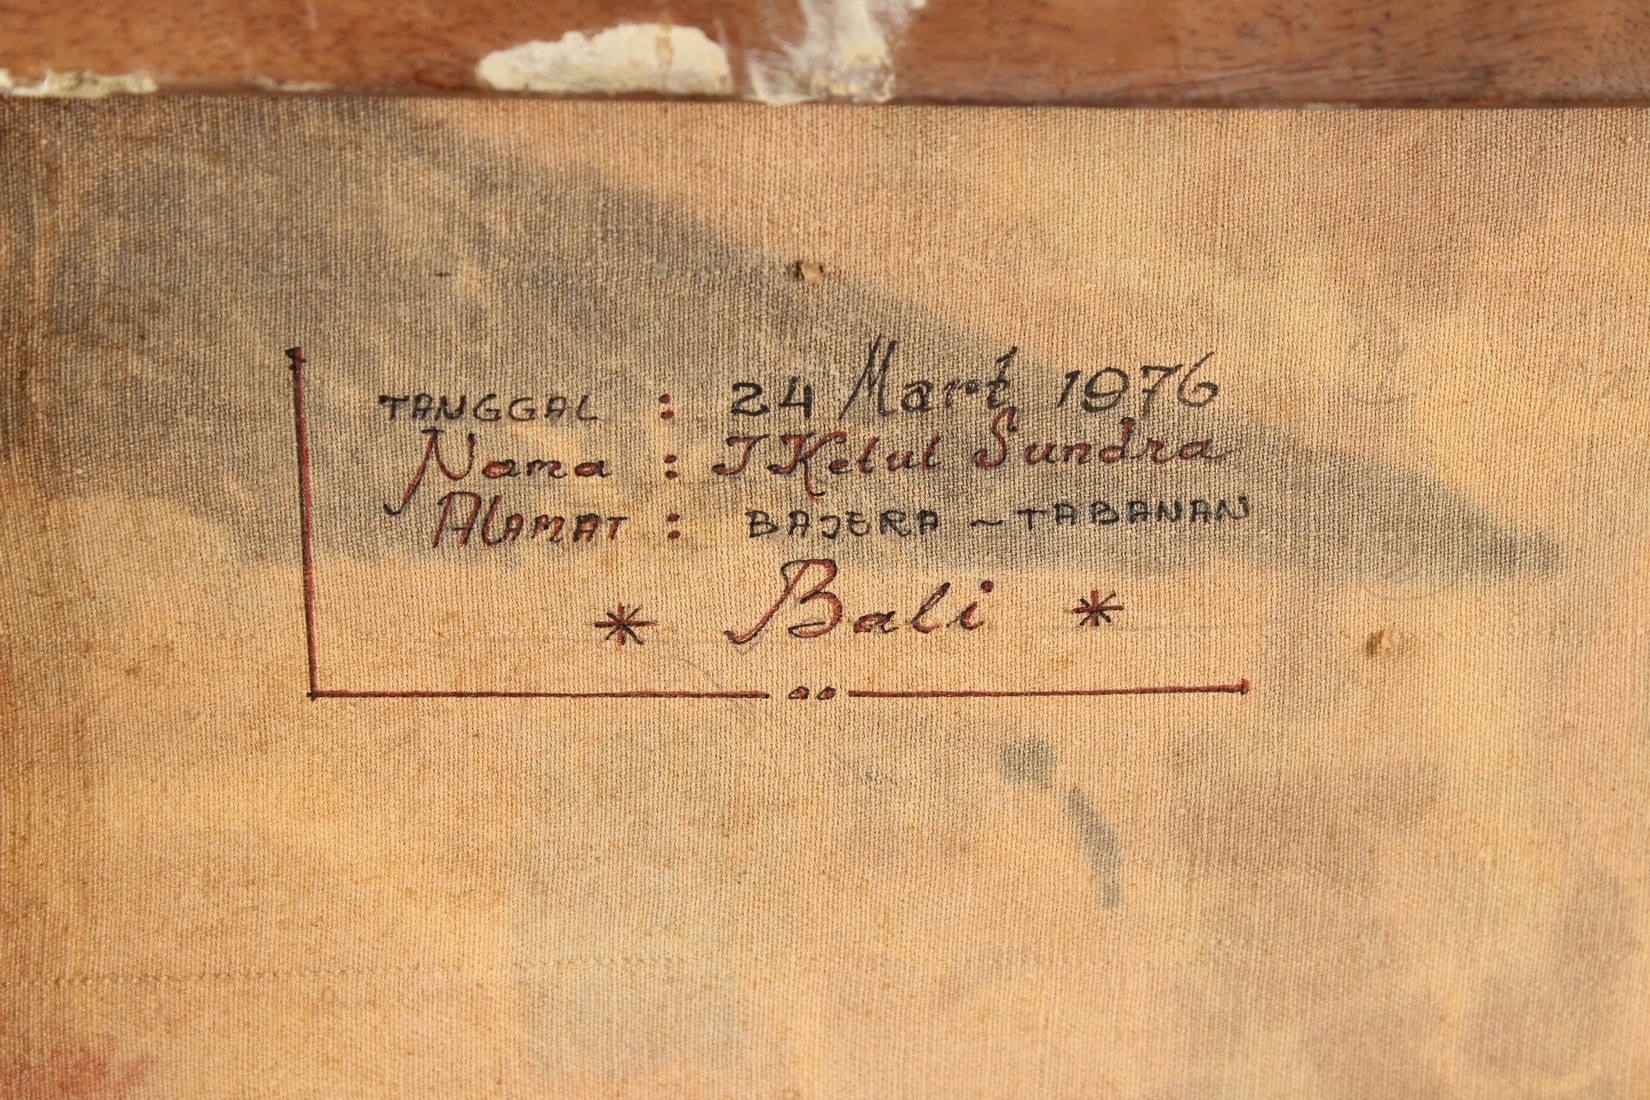 TANGGAL : 24 Mart 1976
Nama : I Ketut Sundra
ALAMAT : BAJERA ~ TABANAN
* Bali *